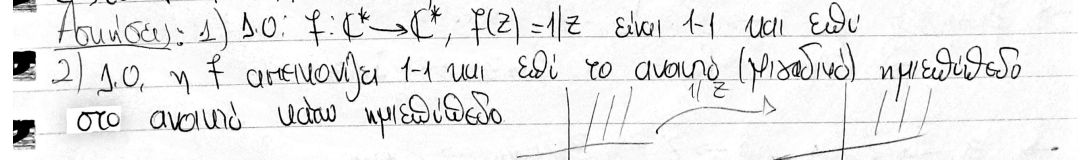 Ασκήσεις: 1) Δ.Ο. f: ℂ* → ℂ*, f(z) = 1/z είναι 1-1 και επί
2) Δ.Ο. η f απεικονίζει 1-1 και επί το ανοικτό (μιγαδικό) ημιεπίπεδο
στο ανοικτό κάτω ημιεπίπεδο
1/z